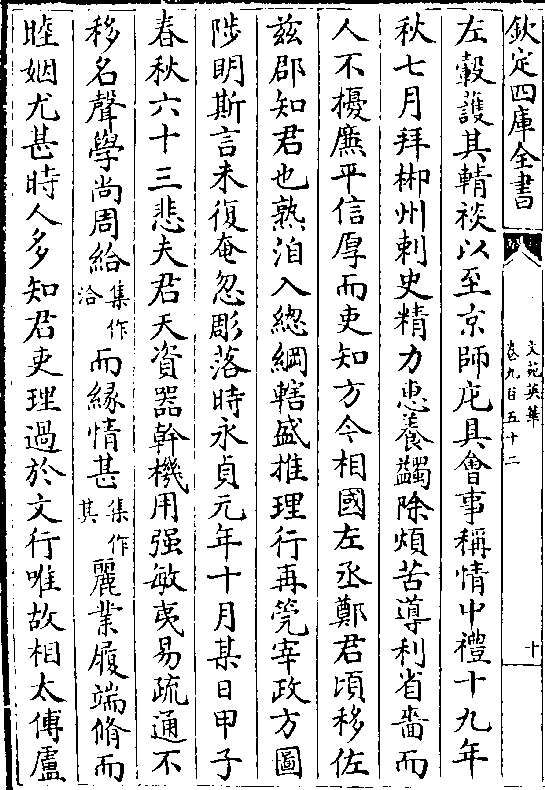 欽定四庫全書
文苑英華
卷九百五十二
十
左轂護其輤祾以至京師庀具會事稱情中禮十九年
秋七月拜郴州刺史精力惠養蠲除煩苦導利省嗇而
人不擾廉平信厚而吏知方今相國左丞鄭君頃移佐
兹郡知君也熟洎入總綱轄盛推理行再筦宰政方圖
陟明斯言未復奄忽彫落時永貞元年十月某日甲子
春秋六十三悲夫君天資器幹機用强敏夷易疏通不
移名聲學尚周給集作洽而緣情甚集作其麗業履端脩而
睦姻尤甚時人多知君吏理過於文行唯故相太傅盧